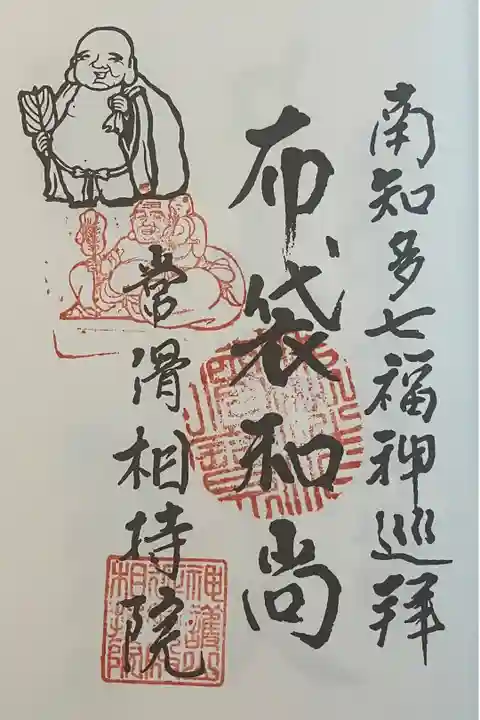 南知多七福神巡拝
布袋和尚
常滑相持院
神護山
相持院